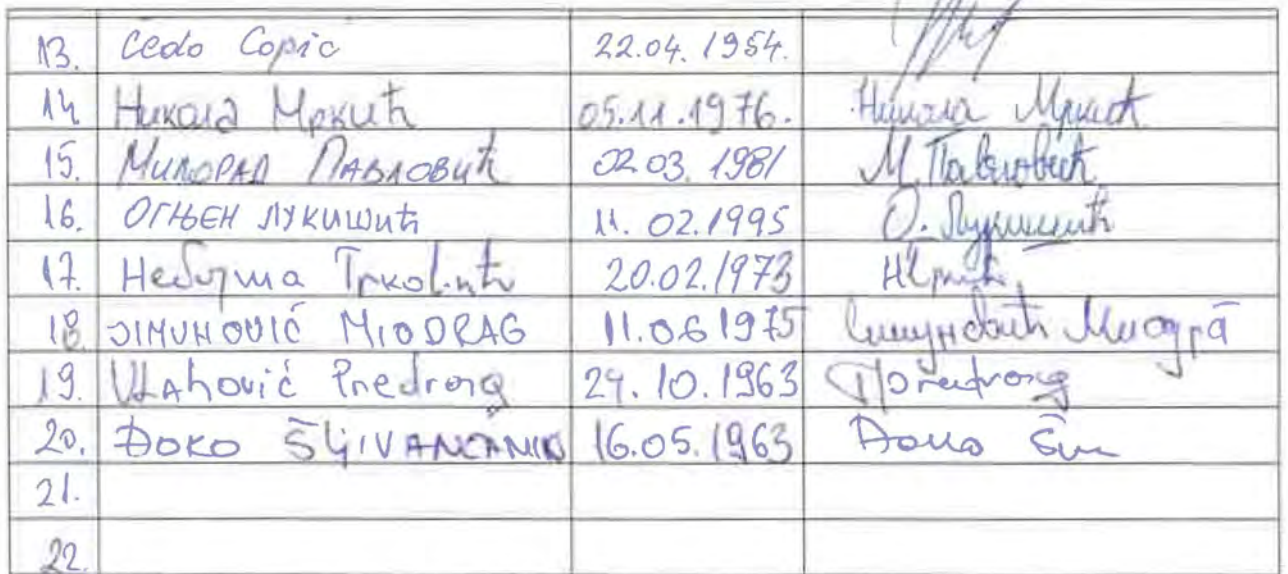 13. Cedo Copic 22.04.1954.
14 Никола Мркић 05.11.1976. Никола Мркић
15. Милорад Павловић 02.03.1981 М. Павловић
16. ОГЊЕН ЛУКИШИЋ 11.02.1995 О. Лукишић
17. Небојша 20.02.1973
18. SIMUNOVIĆ MIODRAG 11.06 1975
19. VLAhović Predrag 24.10.1963
20. ĐOKO ŠLJIVANČANIN 16.05.1963
21.
22.